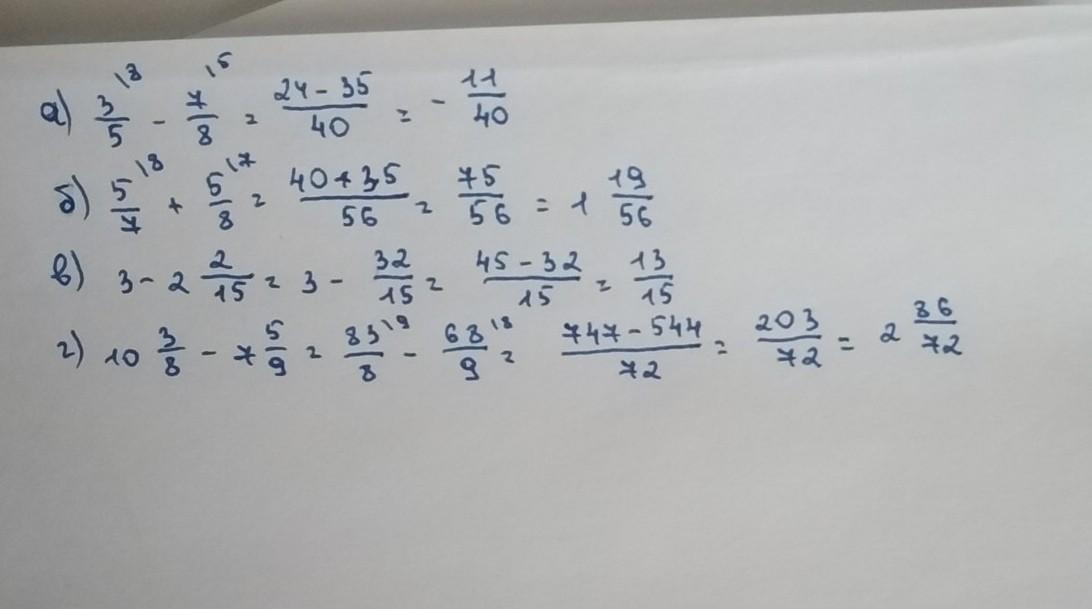 а) 3/5 \8 - 7/8 \5 = (24 - 35)/40 = - 11/40
б) 5/7 \8 + 5/8 \7 = (40 + 35)/56 = 75/56 = 1 19/56
в) 3 - 2 2/15 = 3 - 32/15 = (45 - 32)/15 = 13/15
г) 10 3/8 - 7 5/9 = 83/8 \9 - 68/9 \8 = (747 - 544)/72 = 203/72 = 2 86/72